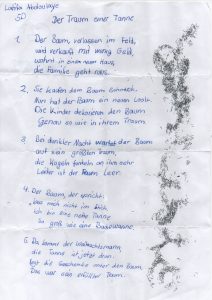 Latifa Abdoulaye
5D
Der Traum einer Tanne
1. Der Baum, verlassen im Feld,
und verkauft mit wenig Geld,
wohnt in einem neuen Haus,
die Familie geht raus.
2. Sie kaufen dem Baum Schmuck.
Nun hat der Baum ein neuen Look.
Die Kinder dekorieren den Baum
Genau so wie in ihrem Traum.
3. Bei dunkler Nacht wartet der Baum
auf sein größten Traum,
die Kugeln funkeln an ihm sehr
Leider ist der Raum Leer.
4. Der Baum, der spricht:
Lass mich nicht im Stich
Ich bin eine neue Tanne
So groß wie eine Badewanne.
5. Da kommt der Weihnachtsmann,
die Tanne ist jetzt dran.
legt die Geschenke unter den Baum,
Das war sein erfüllter Traum.